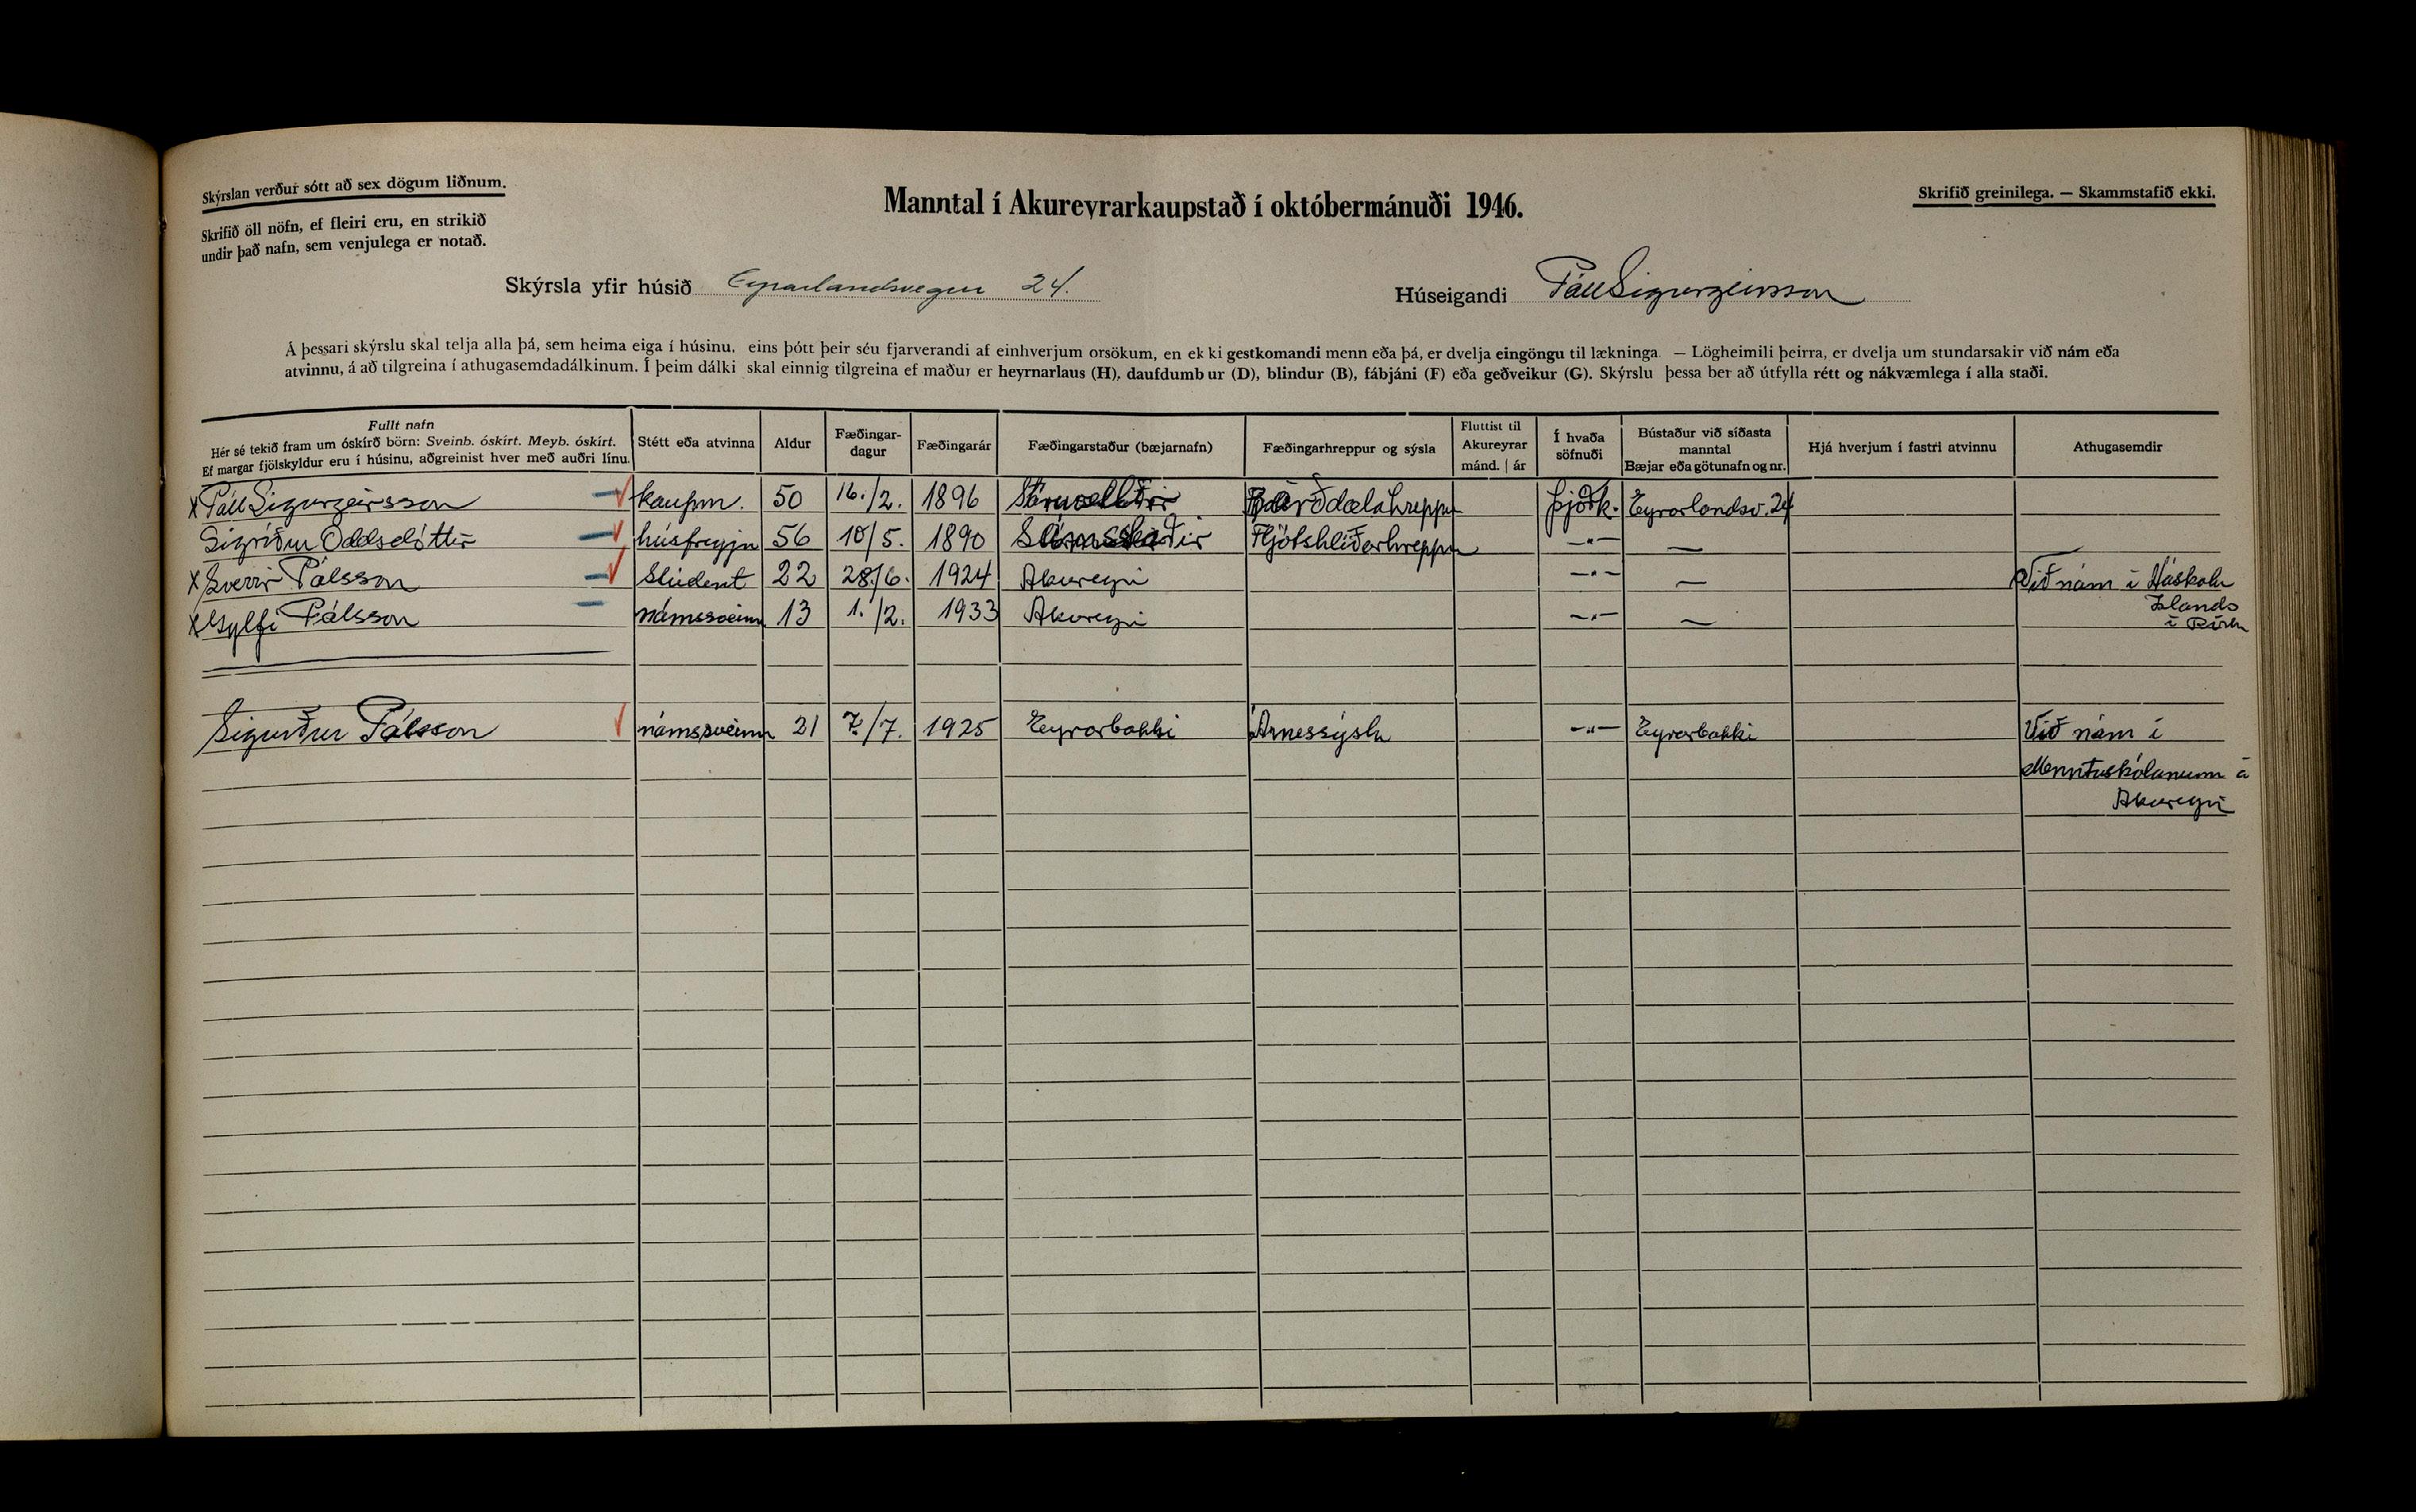 Skýrslan verður sótt að sex dögum liðnum.
Skrifið öll nöfn, ef fleiri eru, en strikið
undir það nafn, sem venjulega er notað.
Manntal í Akureyrarkaupstað í októbermánuði 1946.
Skrifið greinilega. — Skammstafið ekki.
Skýrsla yfir húsið Eyrarlandsvegur 24.
Húseigandi Páll Sigurgeirsson
Á þessari skýrslu skal telja alla þá, sem heima eiga í húsinu, eins þótt þeir séu fjarverandi af einhverjum orsökum, en ekki gestkomandi menn eða þá, er dvelja eingöngu til lækninga. — Lögheimili þeirra, er dvelja um stundarsakir við nám eða
atvinnu, á að tilgreina í athugasemdadálkinum. Í þeim dálki skal einnig tilgreina ef maður er heyrnarlaus (H), daufdumbur (D), blindur (B), fábjáni (F) eða geðveikur (G). Skýrslu þessa ber að útfylla rétt og nákvæmlega í alla staði.
Fullt nafn
Hér sé tekið fram um óskírð börn: Sveinb. óskírt. Meyb. óskírt.
Ef margar fjölskyldur eru í húsinu, aðgreinist hver með auðri línu.
Stétt eða atvinna
Aldur
Fæðingar-
dagur
Fæðingarár
Fæðingarstaður (bæjarnafn)
Fæðingarhreppur og sýsla
Fluttist til
Akureyrar
mánd. | ár
Í hvaða
söfnuði
Bústaður við síðasta
manntal
Bæjar eða götunafn og nr.
Hjá hverjum í fastri atvinnu
Athugasemdir
x Páll Sigurgeirsson kaupm. 50 16./2. 1896 Bárðdælahreppi þjóðk. Eyrarlandsv. 24
Sigríður Oddsdóttir húsfreyja 56 10/5. 1890 Fljótshlíðarhreppur —"— —
x Sverrir Pálsson Stúdent 22 28./6. 1924 Akureyri —"— — Við nám í Háskóla
Íslands
í Rvík
x Gylfi Pálsson námssveinn 13 1./2. 1933 Akureyri —"— —
Sigurður Pálsson námssveinn 21 7./7. 1925 Eyrarbakki Árnessýsla —"— Eyrarbakki Við nám í
Menntaskólanum á
Akureyri